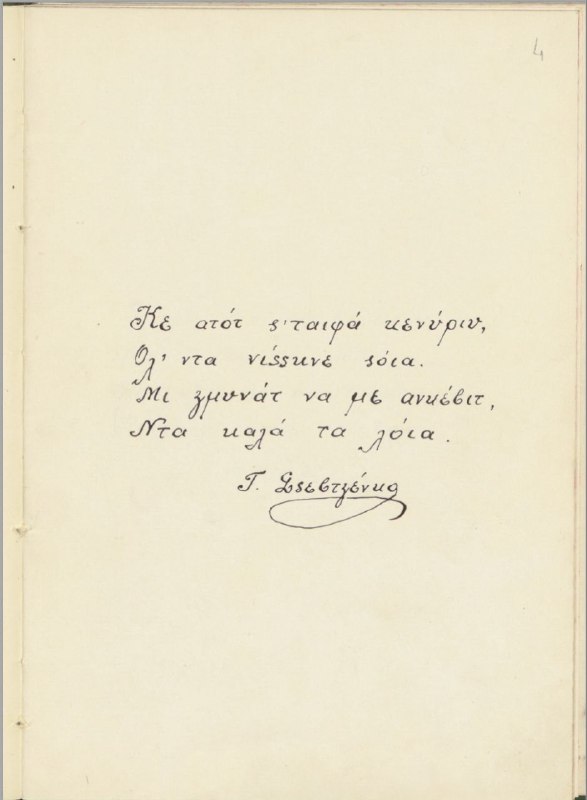 4
Κε ατότ ς'ταιφά κενύριυ,
Ολ' ντα νίςςκνε ςόια.
Μι ζμυνάτ να με ανκέβιτ,
Ντα καλά τα λόια.
Τ. Σςεβτζένκο